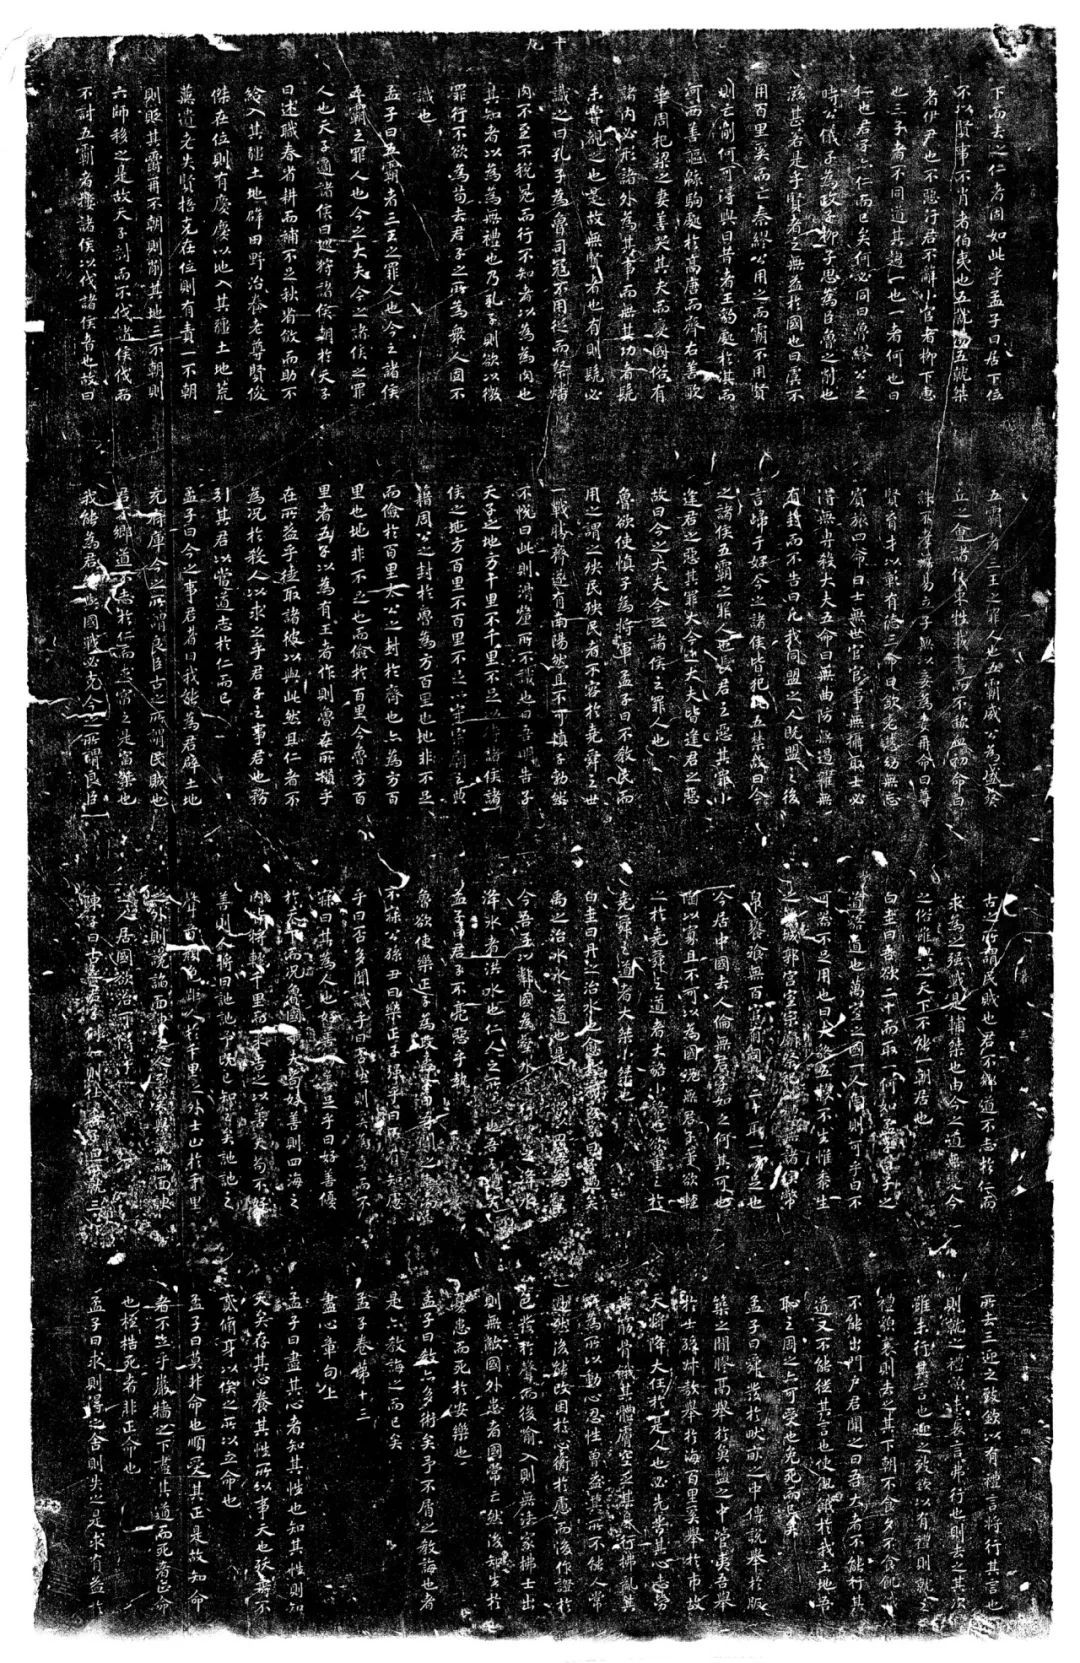 十九
下而去之仁者固如此乎孟子曰居下位
不以賢事不肖者伯夷也五就湯五就桀
者伊尹也不惡汙君不辭小官者柳下惠
也三子者不同道其趨一也一者何也曰
仁也君子亦仁而已矣何必同曰魯繆公之
時公儀子為政子柳子思為臣魯之削也
滋甚若是乎賢者之無益於國也曰虞不
用百里奚而亡秦繆公用之而霸不用賢
則亡削何可得與曰昔者王豹處於淇而
河西善謳緜駒處於高唐而齊右善歌
華周杞梁之妻善哭其夫而變國俗有
諸內必形諸外為其事而無其功者髡
未嘗覩之也是故無賢者也有則髡必
識之曰孔子為魯司寇不用從而祭燔
肉不至不稅冕而行不知者以為為肉也
其知者以為為無禮也乃孔子則欲以微
罪行不欲為苟去君子之所為衆人固不
識也
孟子曰五霸者三王之罪人也今之諸侯
五霸之罪人也今之大夫今之諸侯之罪
人也天子適諸侯曰巡狩諸侯朝於天子
曰述職春省耕而補不足秋省斂而助不
給入其疆土地辟田野治養老尊賢俊
傑在位則有慶慶以地入其疆土地荒
蕪遺老失賢掊克在位則有責一不朝
則貶其爵再不朝則削其地三不朝則
六師移之是故天子討而不伐諸侯伐而
不討五霸者摟諸侯以伐諸侯者也故曰
五霸者三王之罪人也五霸威公為盛葵
丘之會諸侯束牲載書而不歃血初命曰
誅不孝無易立子無以妾為妻再命曰尊
賢育才以彰有德三命曰敬老慈幼無忘
賓旅四命曰士無世官官事無攝取士必
得無專殺大夫五命曰無曲防無遏糴無
有封而不告曰凡我同盟之人既盟之後
言歸于好今之諸侯皆犯此五禁故曰今
之諸侯五霸之罪人也長君之惡其罪小
逢君之惡其罪大今之大夫皆逢君之惡
故曰今之大夫今之諸侯之罪人也
魯欲使慎子為將軍孟子曰不教民而
用之謂之殃民殃民者不容於堯舜之世
一戰勝齊遂有南陽然且不可慎子勃然
不悅曰此則滑釐所不識也曰吾明告子
天子之地方千里不千里不足以待諸侯諸
侯之地方百里不百里不足以守宗廟之典
籍周公之封於魯為方百里也地非不足
而儉於百里太公之封於齊也亦為方百
里也地非不足也而儉於百里今魯方百
里者五子以為有王者作則魯在所損乎
在所益乎徒取諸彼以與此然且仁者不
為況於殺人以求之乎君子之事君也務
引其君以當道志於仁而已
孟子曰今之事君者曰我能為君辟土地
充府庫今之所謂良臣古之所謂民賊也
君不鄉道不志於仁而求富之是富桀也
我能為君約與國戰必克今之所謂良臣
古之所謂民賊也君不鄉道不志於仁而
求為之強戰是輔桀也由今之道無變今
之俗雖與之天下不能一朝居也
白圭曰吾欲二十而取一何如孟子曰子之
道貉道也萬室之國一人陶則可乎曰不
可器不足用也曰夫貉五穀不生惟黍生
之無城郭宮室宗廟祭祀之禮無諸侯幣
帛饔飧無百官有司故二十取一而足也
今居中國去人倫無君子如之何其可也
陶以寡且不可以為國況無君子乎欲輕
之於堯舜之道者大貉小貉也欲重之於
堯舜之道者大桀小桀也
白圭曰丹之治水也愈於禹孟子曰子過矣
禹之治水水之道也是故禹以四海為壑
今吾子以鄰國為壑水逆行謂之洚水
洚水者洪水也仁人之所惡也吾子過矣
孟子曰君子不亮惡乎執
魯欲使樂正子為政孟子曰吾聞之喜而
不寐公孫丑曰樂正子強乎曰否有知慮
乎曰否多聞識乎曰否然則奚為喜而不
寐曰其為人也好善好善足乎曰好善優
於天下而況魯國乎夫苟好善則四海之
內皆將輕千里而來告之以善夫苟不好
善則人將曰訑訑予既已知之矣訑訑之
聲音顏色距人於千里之外士止於千里
之外則讒諂面諛之人至矣與讒諂面諛
之人居國欲治可得乎
陳子曰古之君子何如則仕孟子曰所就三
所去三迎之致敬以有禮言將行其言也
則就之禮貌未衰言弗行也則去之其次
雖未行其言也迎之致敬以有禮則就之
禮貌衰則去之其下朝不食夕不食飢餓
不能出門戶君聞之曰吾大者不能行其
道又不能從其言也使飢餓於我土地吾
恥之周之亦可受也免死而已矣
孟子曰舜發於畎畝之中傅說舉於版
築之間膠鬲舉於魚鹽之中管夷吾舉
於士孫叔敖舉於海百里奚舉於市故
天將降大任於是人也必先苦其心志勞
其筋骨餓其體膚空乏其身行拂亂其
所為所以動心忍性曾益其所不能人常
過然後能改困於心衡於慮而後作證於
色發於聲而後喻入則無法家拂士出
則無敵國外患者國常亡然後知生於
憂患而死於安樂也
孟子曰教亦多術矣予不屑之教誨也者
是亦教誨之而已矣
孟子卷第十三
盡心章句上
孟子曰盡其心者知其性也知其性則知
天矣存其心養其性所以事天也殀壽不
貳脩身以俟之所以立命也
孟子曰莫非命也順受其正是故知命
者不立乎巖牆之下盡其道而死者正命
也桎梏死者非正命也
孟子曰求則得之舍則失之是求有益於